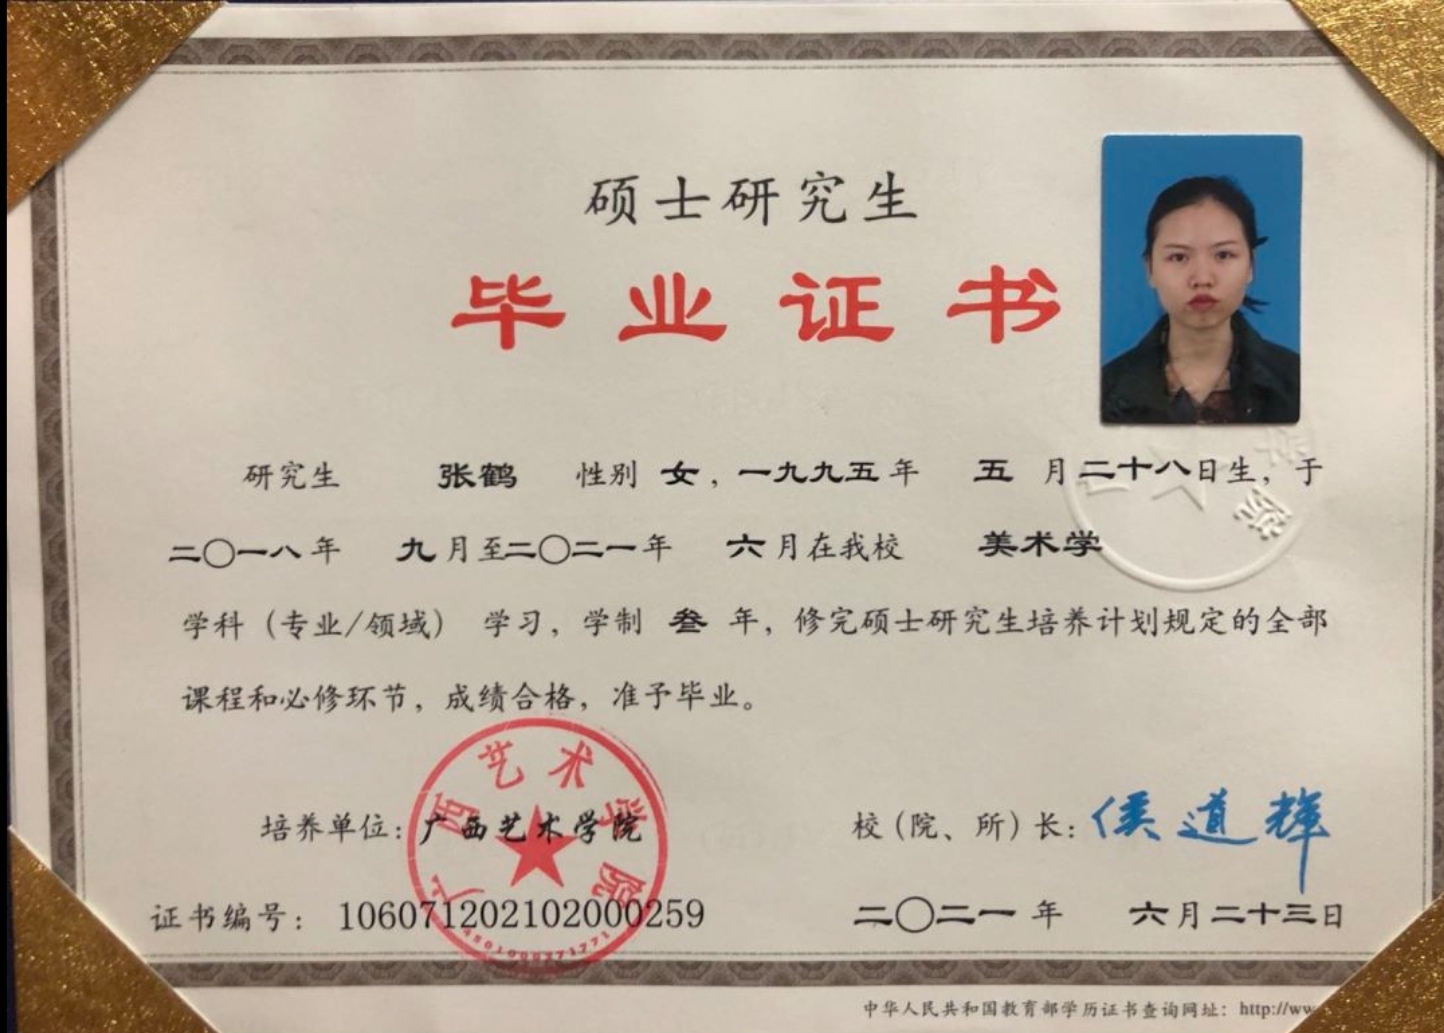 硕士研究生
毕业证书
研究生 张鹤 性别 女，一九九五年 五 月二十八日生，于
二〇一八年 九月至二〇二一年 六月在我校 美术学
学科（专业/领域） 学习，学制 叁 年，修完硕士研究生培养计划规定的全部
课程和必修环节，成绩合格，准予毕业。
培养单位：广西艺术学院
校（院、所）长：侯道辉
证书编号：106071202102000259
二〇二一年 六月二十三日
广西艺术学院
中华人民共和国教育部学历证书查询网址：http://ww